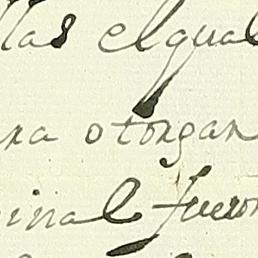 llas el qual
na otorgan
inal fueron